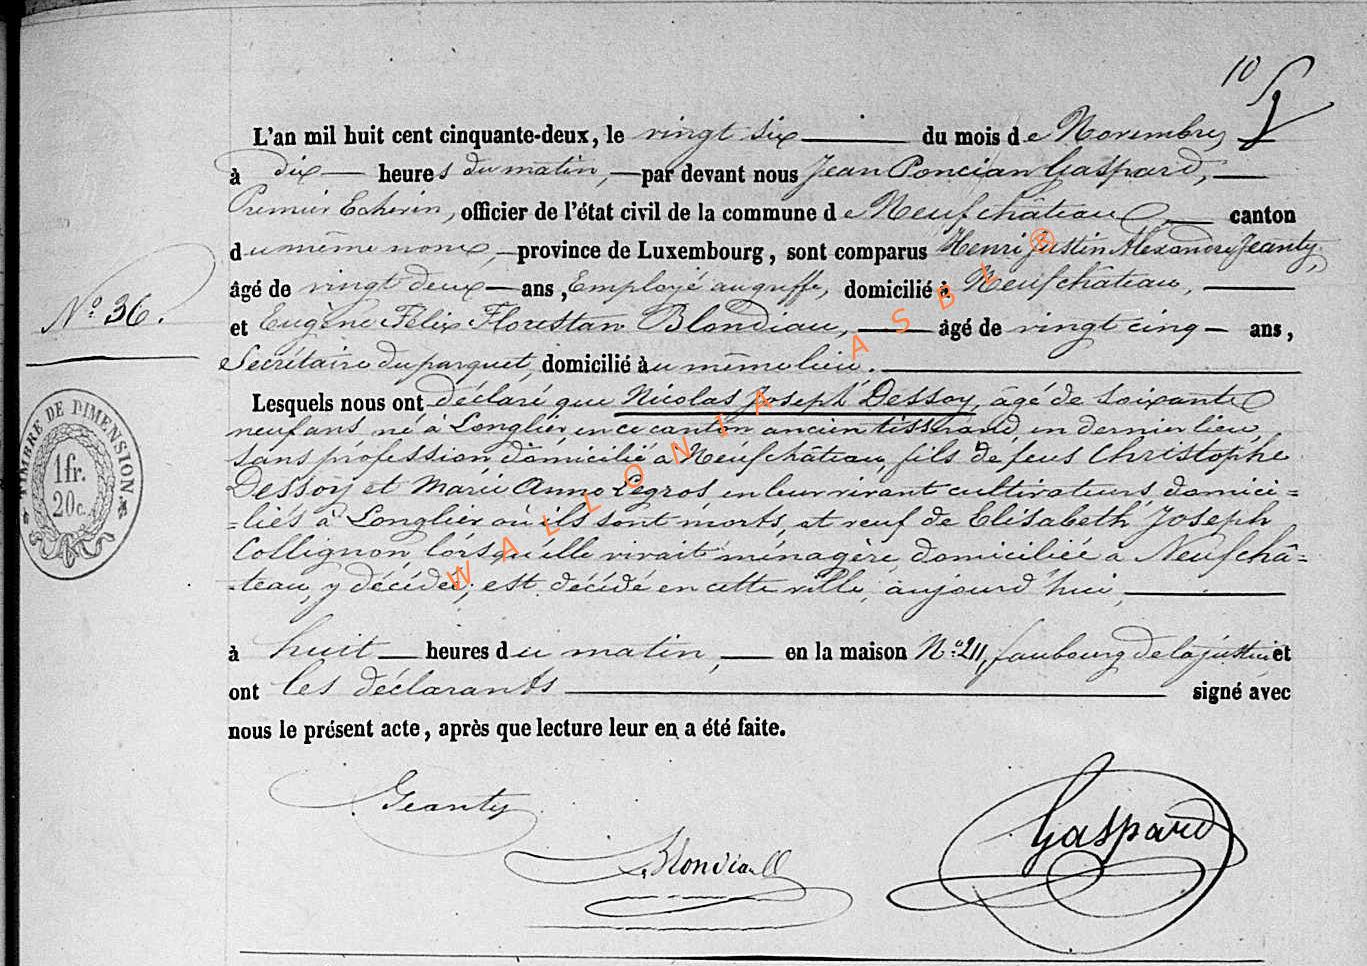 10
L'an mil huit cent cinquante-deux, le vingt six du mois de Novembre,
à dix heures du matin, par devant nous Jean Poncian Gaspard,
Premier Echevin, officier de l'état civil de la commune de Neufchâteau, canton
du même nom, province de Luxembourg, sont comparus Henri Justin Alexandre Jeanty,
âgé de vingt deux ans, Employé au greffe, domicilié à Neufchâteau,
Nº 36.
et Eugène Félix Florestan Blondiau, âgé de vingt cinq ans,
Secrétaire du parquet, domicilié au même lieu.
Lesquels nous ont déclaré que Nicolas Joseph Dessoy, âgé de soixante
neuf ans né à Longlier en ce canton ancien tisserand, en dernier lieu
sans profession, domicilié à Neufchâteau, fils de feus Christophe
Dessoy et Marie Anne Legros en leur vivant cultivateurs domici=
=liés à Longlier où ils sont morts, et veuf de Elisabeth Joseph
Collignon, lorsqu'elle vivait ménagère, domiciliée à Neufchâ=
-teau, y décédée, est décédé en cette ville, aujourd'hui,
à huit heures du matin, en la maison Nº 211, faubourg de la justice et
ont les déclarants signé avec
nous le présent acte, après que lecture leur en a été faite.
TIMBRE DE DIMENSION.
1 fr.
20 c.
Jeanty
Blondiau
Gaspard
WALLONIA ASBL ®